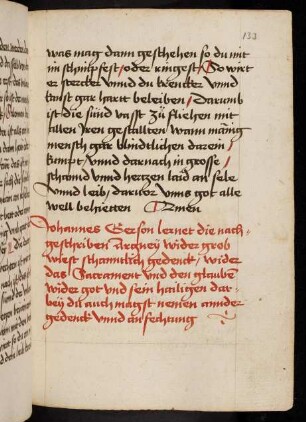 133
was mag dann geschehen so du mit
im schimpfest / oder ringest / So wirt
er stercker vnnd du krencker vnnd
kanst gar hartt beleiben / Darumb
ist die sünd vasst zů fliehen mit
allen Iren gestallten / wann mänig
mensch gar blindtlichen darein
kompt vnnd darnach in grosse /
schannd vnnd hertzen laid an sele
vnnd leib / daruor vnns got alle
well behietten Amen
Johannes Gerson lernet die nach
geschriben Artzney wider grob
wiest schamlich gedenck / wider
das Sacrament vnd den glaube
wider got vnd sein hailigen dar
bey du auch magst nemen annder
gedenck vnnd anfechtung